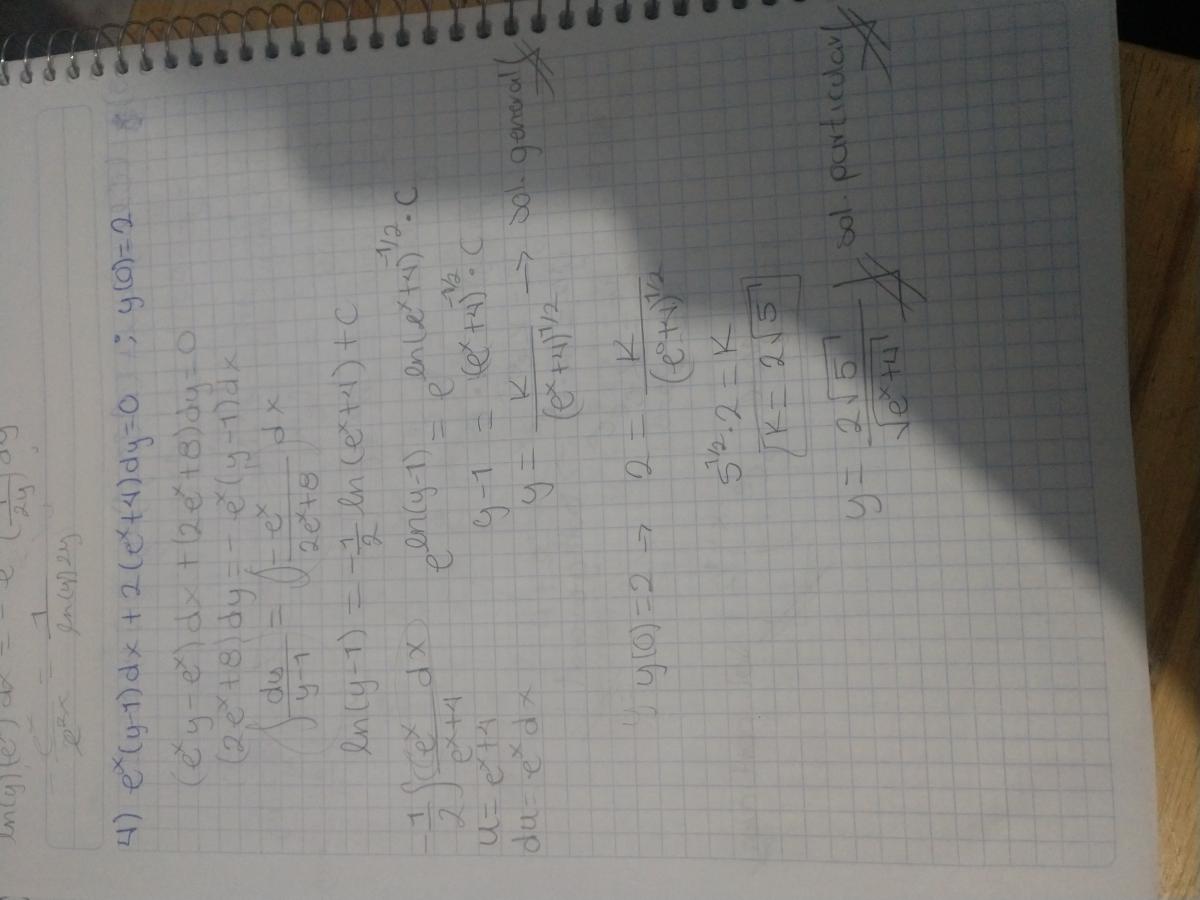 4) eˣ(y-1)dx + 2(eˣ+4)dy=0 ; y(0)=2
(eˣy-eˣ)dx + (2eˣ+8)dy=0
(2eˣ+8)dy=-eˣ(y-1)dx
∫ dy/(y-1) = ∫ -eˣ/(2eˣ+8) dx
ln(y-1) = -1/2 ln(eˣ+4)+C
-1/2 ∫ eˣ/(eˣ+4) dx
u= eˣ+4
du= eˣ dx
e^(ln(y-1)) = e^(ln(eˣ+4)^(-1/2)) · C
y-1 = (eˣ+4)^(-1/2) · C
y= K/(eˣ+4)^(1/2) → sol. general
y(0)=2 → 2 = K/(e⁰+4)^(1/2)
5^(1/2) · 2 = K
K= 2√5
y= 2√5/√(eˣ+4) sol. particular